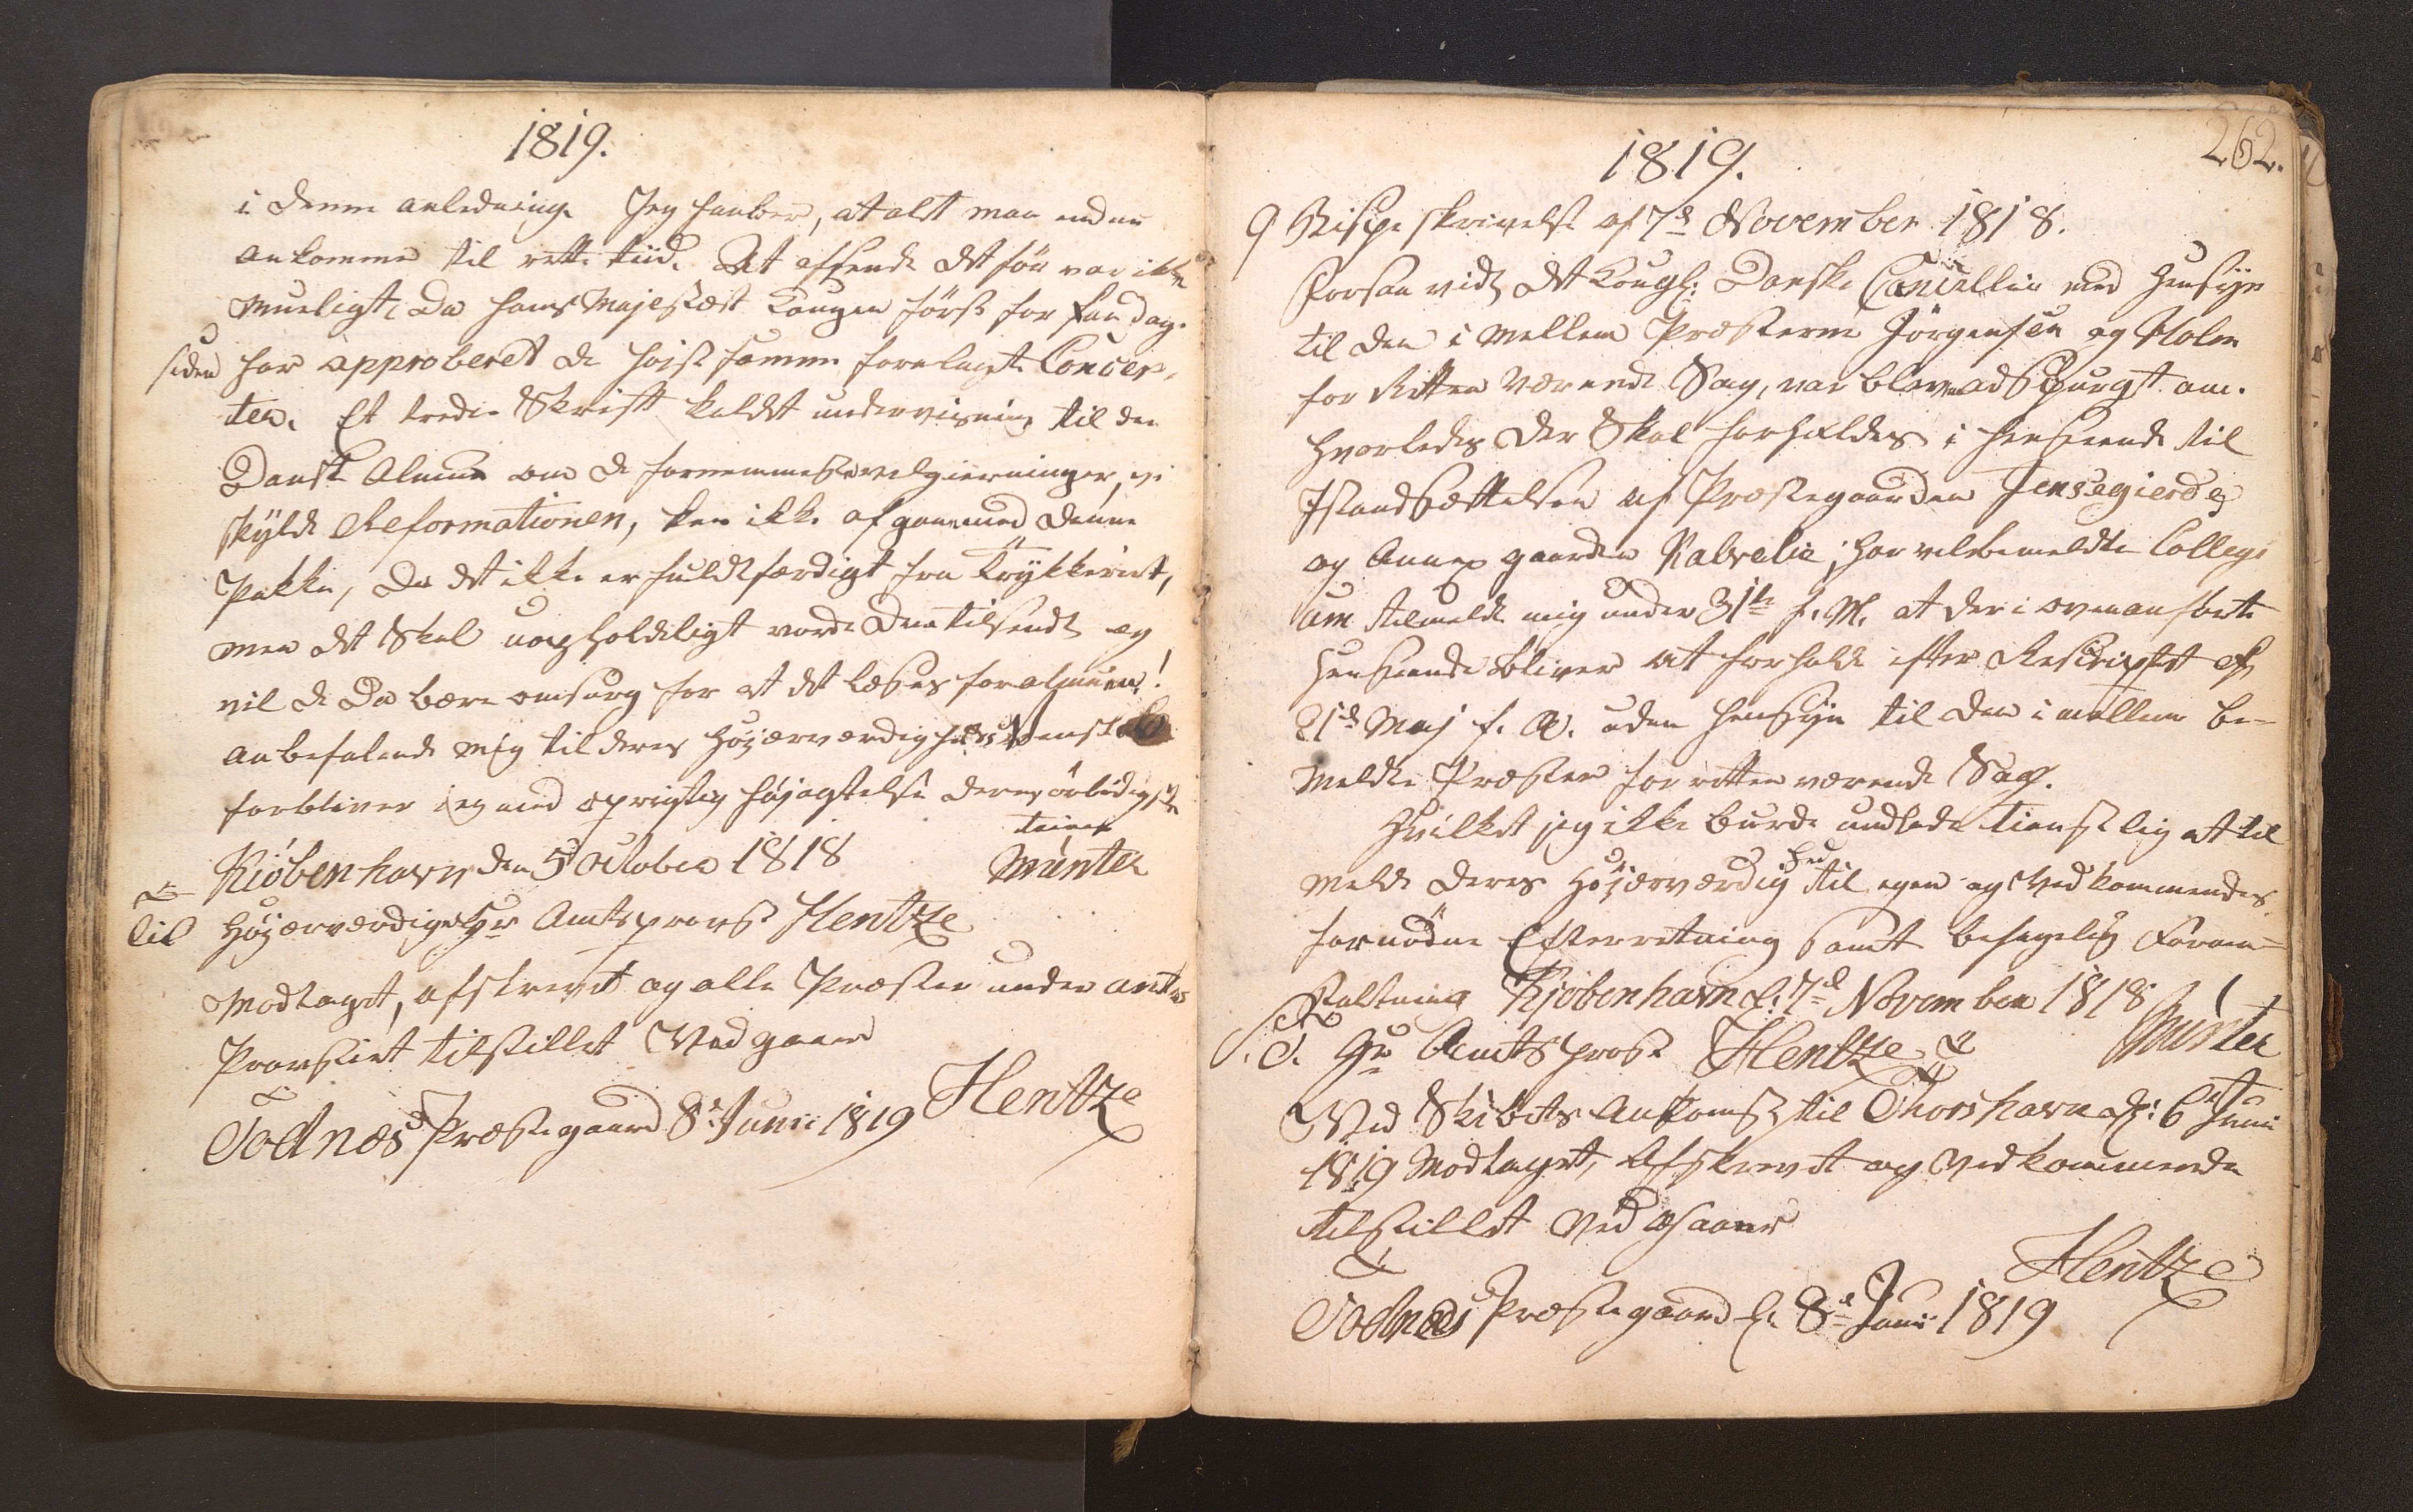 1819.
i denne anledning. Jeg haaber, at alt maa endnu
ankomme til rette tiid. At afsende det för var ikke
mueligt, da Hans Majestæt Kongen först for faa dage
siden har approberet de høist samme forelagte Concep-
ter. Et tredie Skrift kaldt underviisning til den
Danske Almue om de fornemmeste velgierninger, vi
skylde Reformationen, kan ikke afgaae med denne
Pakke, da det ikke er fuldfærdigt fra Trykkeriet,
men det Skal uopholdeligt vorde Dem tilsendt og
vil de da bære omsorg for at det læses for almuen!
anbefalende mig til deres Höjærværdigheds Venskab
forbliver jeg med oprigtig höjagtelse deres örbödigste
tiener
Kiöbenhavn den 5 October 1818 Münter
til Höjærværdige Hr Amtsprovst Hentze
Modtaget, afskrevet og alle Præster under amts
Provstiet tilstillet Vedgaaer
Hentze
Todnæs Præstegaard 8de Junii 1819
262.
1819.
9 Bispe skrivelse af 7d November 1818.
Forsaavidt det Kongl: Danske Cancellie med Hensyn
til den i mellem Præsterne Jörgensen og Holm
for Retten værende Sag, var bleven adspurgt om.
hvorledes der Skal forholdes i henseende til
Istandsættelsen af Præstegaarden Jensegierde
og Annex gaarden Kalvelie, har velbemeldte Collegi
um tilmeldt mig under 31te f. M. at der i ovenanførte
henseende bliver at forholde efter Rescriptet af
21d Maj f. A. uden hensyn til den i mellem be-
meldte Præster for retten værende Sag.
Hvilket jeg ikke burde undlade tienstlig at til
melde deres Höjærværdighed til egen og Vedkommendes
fornödne Efterretning samt behagelig Foran-
staltning Kjöbenhavn d. 7d November 1818
Münter
S. T. Hr Amtsprovst Hentze
Ved Skibets Ankomst til Thorshavn d: 6te Juni
1819 Modtaget, Afskrevet og vedkommende
tilstillet Vedgaaer
Hentze
Todnæs Præstegaard d. 8d Juni 1819